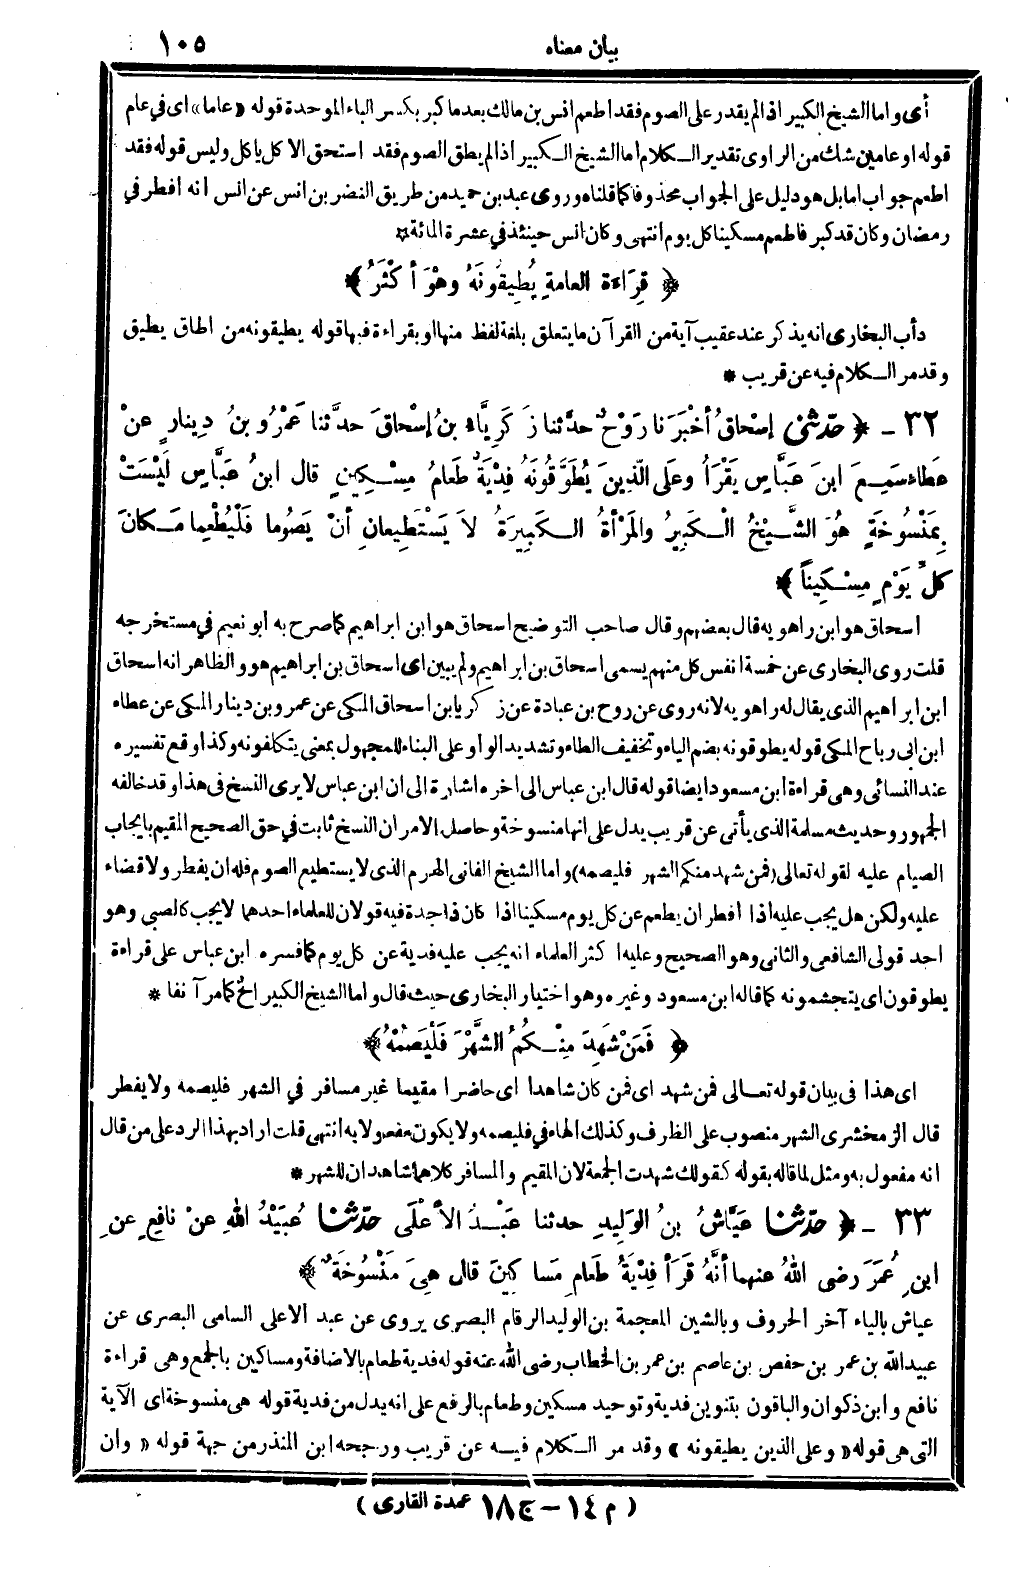 بيان معناه ١٠٥
أى واما الشيخ الكبير اذا لم يقدر على الصوم فقد اطعم انس بن مالك بعد ما كبر بكسر الباء الموحدة قوله «عاما» اى فى عام
قوله او عامين شك من الراوى تقدير الكلام أما الشيخ الكبير اذا لم يطق الصوم فقد استحق الاكل ياكل وليس قوله فقد
اطعم جواب اما بل هو دليل على الجواب محذوفا كما قلناه وروى عبد بن حميد من طريق النضر بن انس عن انس انه افطر في
رمضان وكان قد كبر فاطعم مسكينا كل يوم انتهى وكان انس حينئذ في عشرة المائة *
﴿ قِرَاءة العامةِ يُطِيقُونَهُ وهْوَ أكْثَرُ ﴾
دأب البخارى انه يذكر عند عقيب آية من القرآن ما يتعلق بلغة لفظ منها او بقراءة فيها قوله يطيقونه من اطاق يطيق
وقد مر الكلام فيه عن قريب *
٣٢ - ﴿ حَدّثنى إسْحاقُ أخْبَرَنا رَوْحٌ حدّثنا زَكَرِيَّاءُ بنُ إسْحاقَ حدَّثنا عَمْرُو بنُ دِينارٍ عنْ
عَطاءٍ سَمِعَ ابنَ عَبَّاسٍ يَقْرَأُ وعَلَى الَّذِينَ يُطَوَّقُونَهُ فِدْيَةٌ طَعَامُ مِسْكِينٍ قال ابنُ عَبَّاسٍ لَيْسَتْ
بِمَنْسُوخَةٍ هُوَ الشَّيْخُ الْكَبِيرُ والمَرْأةُ الكَبِيرَةُ لاَ يَسْتَطِيعانِ أنْ يَصُوما فَلْيُطْعِما مَكانَ
كلِّ يَوْمٍ مِسْكِيناً ﴾
اسحاق هو ابن راهويه قال بعضهم وقال صاحب التوضيح اسحاق هو ابن ابراهيم كما صرح به أبو نعيم في مستخرجه
قلت روى البخارى عن خمسة انفس كل منهم يسمى اسحاق بن ابراهيم ولم يبين اى اسحاق بن ابراهيم هو والظاهر انه اسحاق
ابن ابراهيم الذى يقال له راهويه لانه روى عن روح بن عبادة عن زكريا بن اسحاق المكى عن عمرو بن دينار المكى عن عطاء
ابن ابى رباح المكى قوله يطوقونه بضم الياء وتخفيف الطاء وتشديد الواو على البناء للمجهول بمعنى يتكلفونه وكذا وقع تفسيره
عند النسائى وهى قراءة ابن مسعود ايضا قوله قال ابن عباس الى اخره اشارة الى ان ابن عباس لا يرى النسخ فى هذا وقد خالفه
الجمهور وحديث مسلمة الذى يأتى عن قريب يدل على انها منسوخة وحاصل الامر ان النسخ ثابت في حق الصحيح المقيم بايجاب
الصيام عليه لقوله تعالى (فمن شهد منكم الشهر فليصمه) واما الشيخ الفانى الهرم الذى لا يستطيع الصوم فله ان يفطر ولا قضاء
عليه ولكن هل يجب عليه اذا افطر ان يطعم عن كل يوم مسكينا اذا كان ذا جدة فيه قولان للعلماء احدهما لا يجب كالصبى وهو
احد قولى الشافعى والثانى وهو الصحيح وعليه اكثر العلماء انه يجب عليه فدية عن كل يوم كما فسره ابن عباس على قراءة
يطوقون اى يتجشمونه كما قاله ابن مسعود وغيره وهو اختيار البخارى حيث قال واما الشيخ الكبير الخ كما مر آنفا *
﴿ فَمَنْ شَهِدَ مِنْكُمُ الشَّهْرَ فَلْيَصُمْهُ ﴾
اى هذا فى بيان قوله تعالى فمن شهد اى فمن كان شاهدا اى حاضرا مقيما غير مسافر في الشهر فليصمه ولا يفطر
قال الزمخشرى الشهر منصوب على الظرف وكذلك الهاء في فليصمه ولا يكون مفعولا به انتهى قلت اراد بهذا الرد على من قال
انه مفعول به ومثل لما قاله بقوله كقولك شهدت الجمعة لان المقيم والمسافر كلاهما شاهدان للشهر *
٣٣ - ﴿ حَدّثنا عَيَّاشُ بنُ الوَلِيدِ حدثنا عَبْدُ الأعْلَى حدّثنا عُبَيْدُ اللهِ عنْ نافِعٍ عنِ
ابنِ عُمَرَ رضى اللهُ عنهما أنَّهُ قَرَأ فِدْيَةُ طَعامِ مَساكِينَ قال هِىَ مَنْسُوخَةٌ ﴾
عياش بالياء آخر الحروف وبالشين المعجمة بن الوليد الرقام البصرى يروى عن عبد الاعلى السامى البصرى عن
عبيد الله بن عمر بن حفص بن عاصم بن عمر بن الخطاب رضى الله عنه قوله فدية طعام بالاضافة ومساكين بالجمع وهى قراءة
نافع وابن ذكوان والباقون بتنوين فدية وتوحيد مسكين وطعام بالرفع على انه يدل من فدية قوله هى منسوخة اى الآية
التى هى قوله «وعلى الذين يطيقونه» وقد مر الكلام فيه عن قريب ورجحه ابن المنذر من جهة قوله «وان
(م ١٤ - ج ١٨ عمدة القارى)